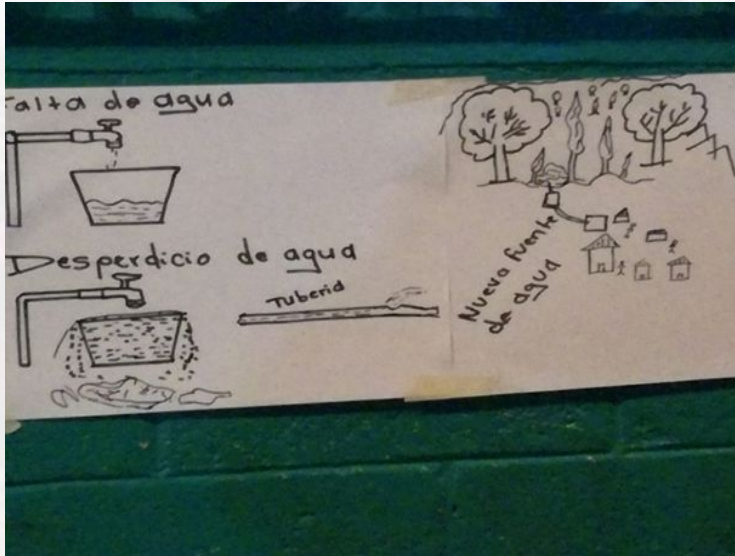 Falta de agua
Desperdicio de agua
Tuberia
Nueva fuente
de agua